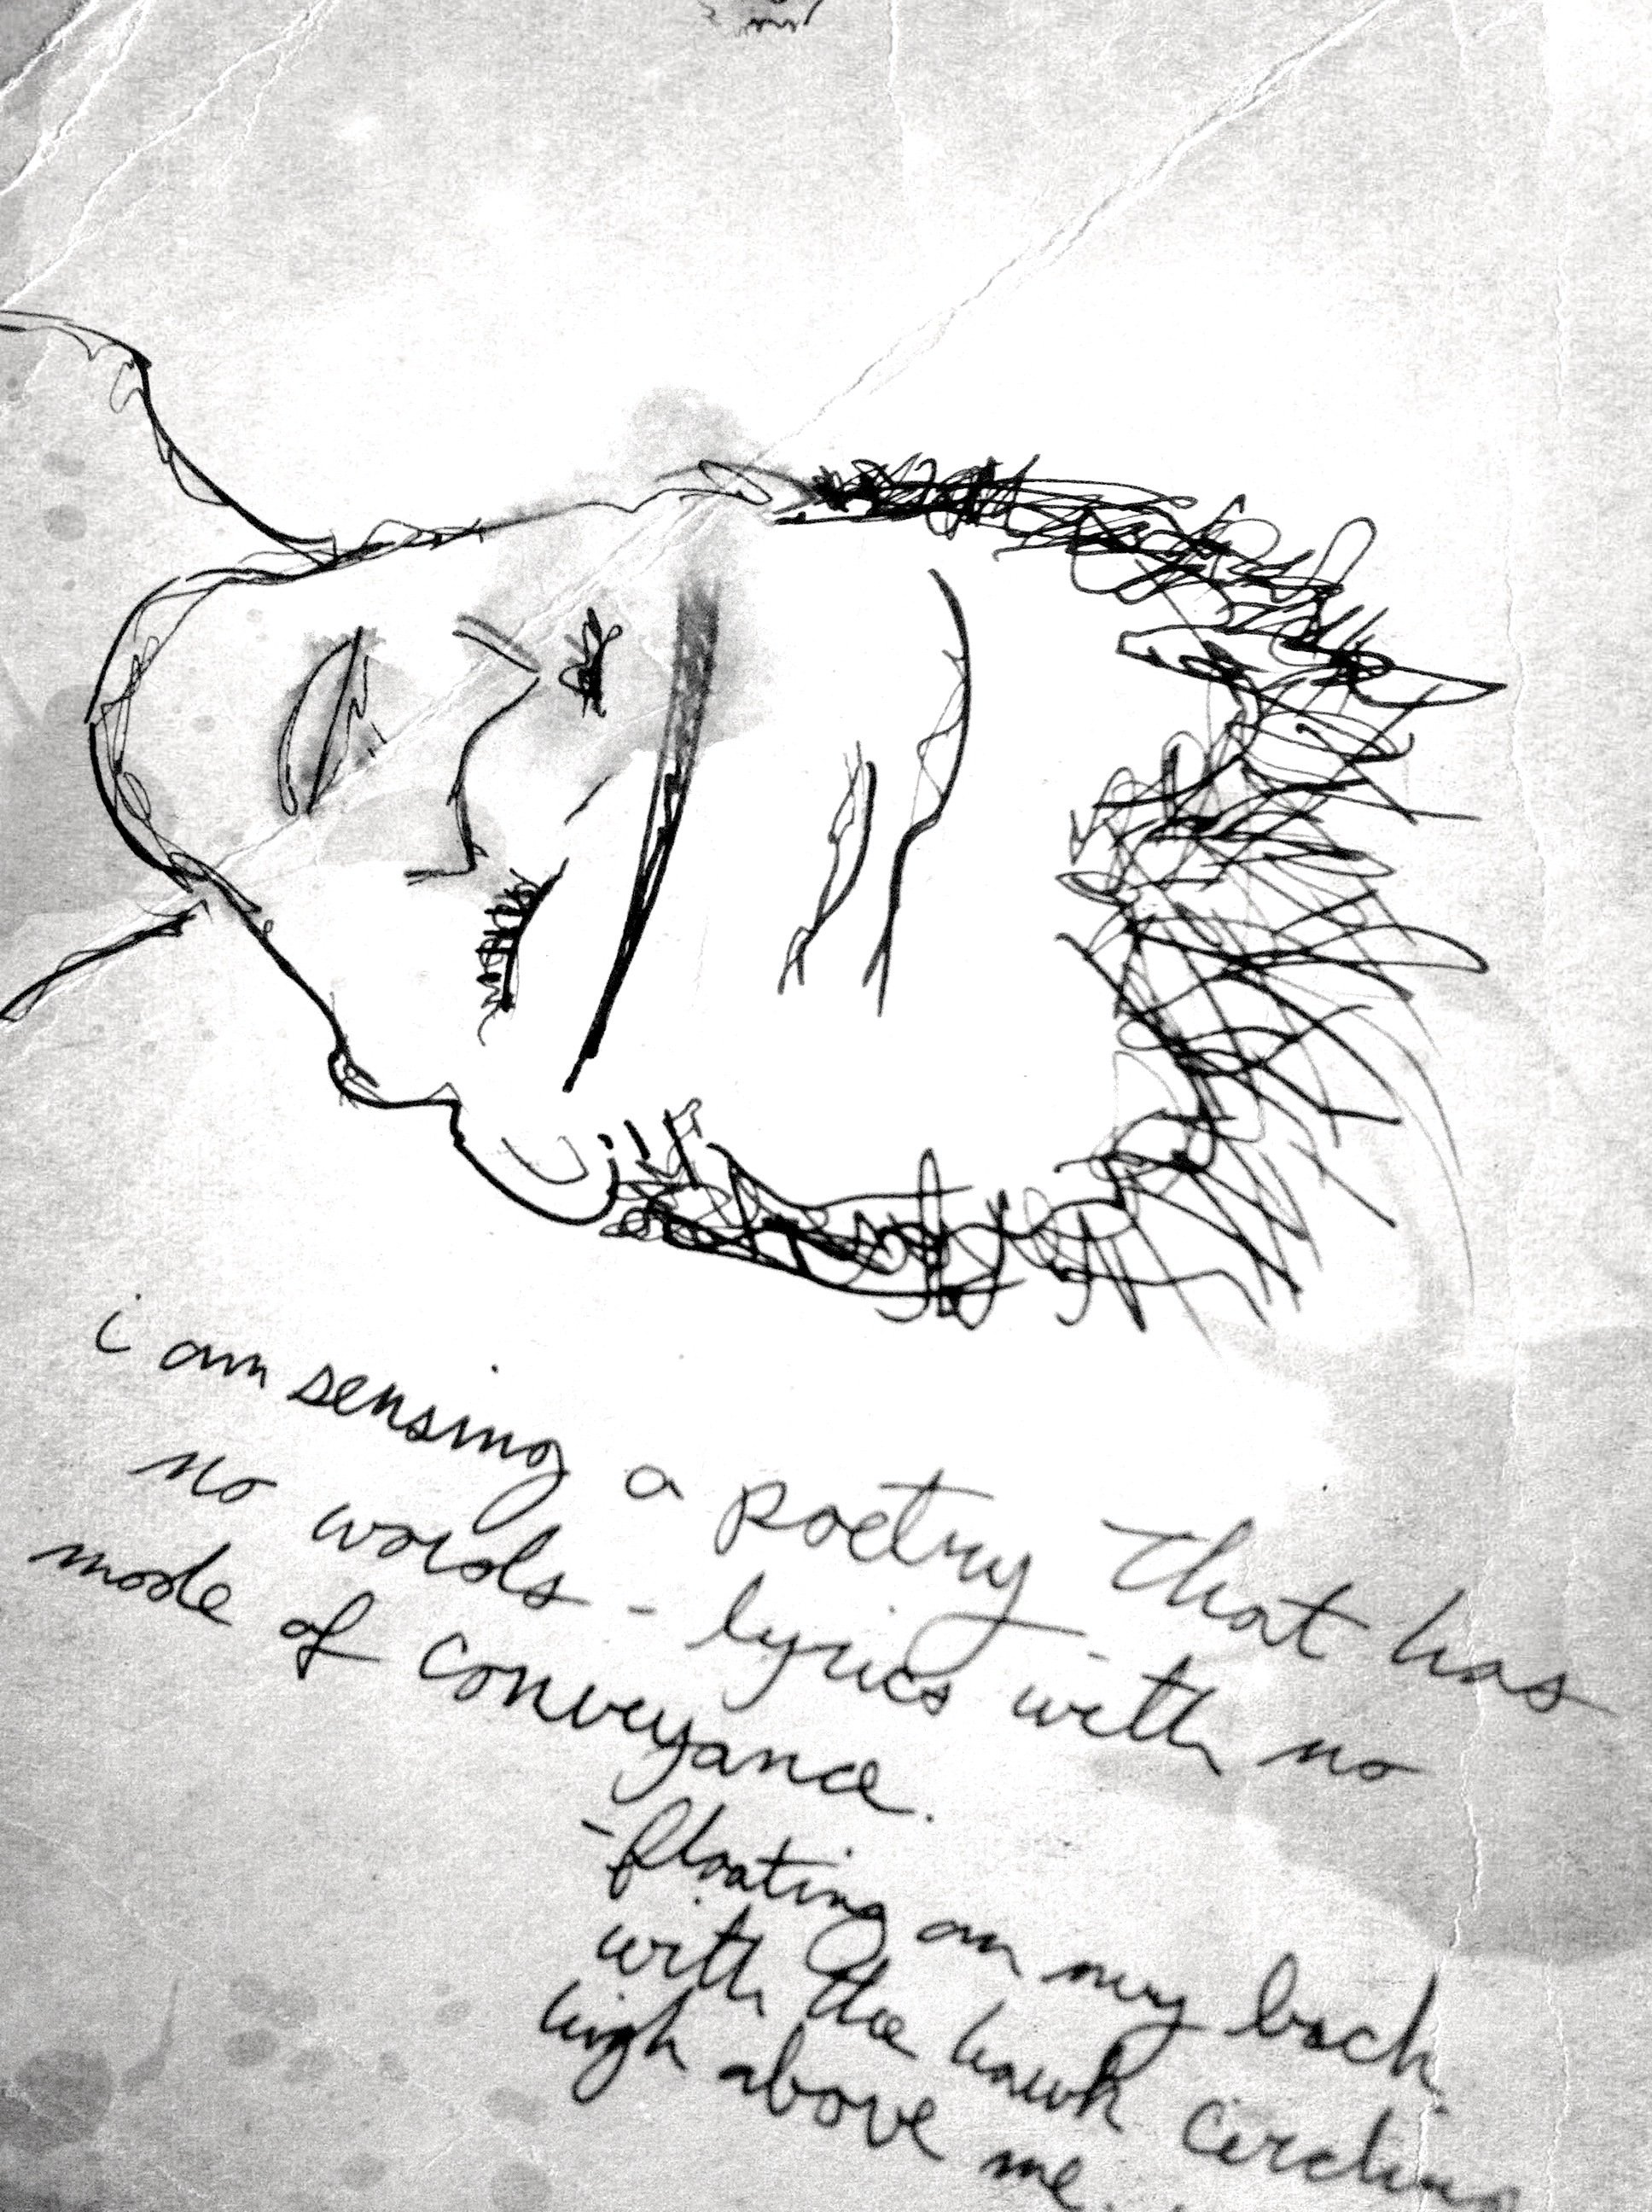 i am sensing a poetry that has
no words - lyrics with no
mode of conveyance.
-floating on my back
with the hawk circling
high above me.